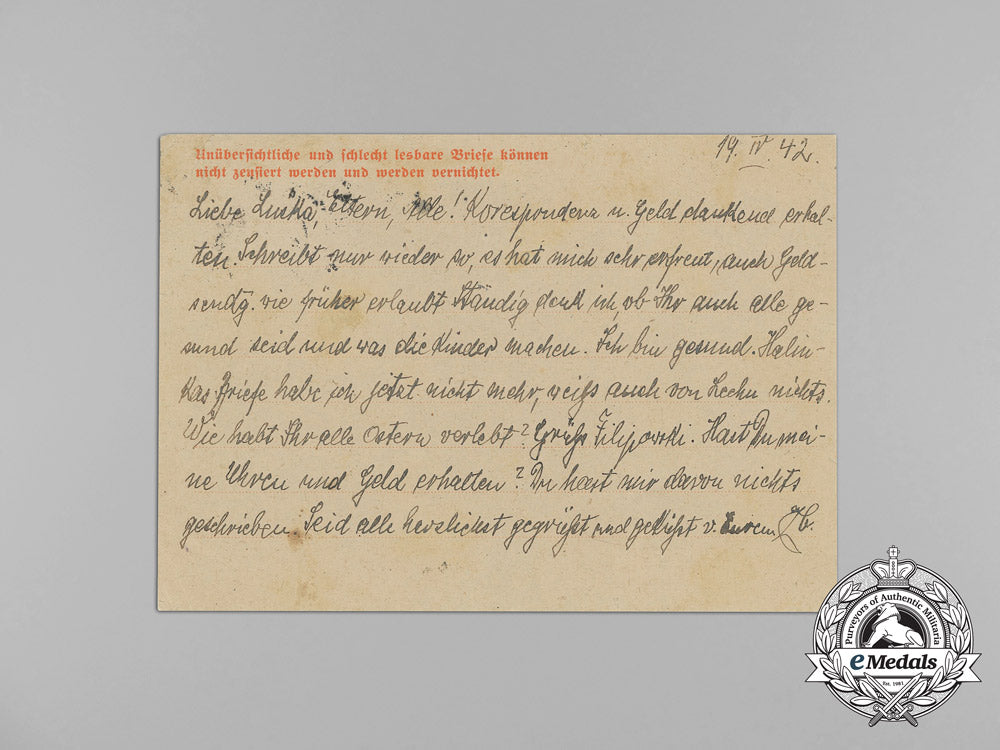 19. IV. 42.
Unübersichtliche und schlecht lesbare Briefe können
nicht zensiert werden und werden vernichtet.
Liebe Luska, Eltern, Alle! Korespondenz u. Geld dankend erhal-
ten. Schreibt nur wieder so, es hat mich sehr erfreut, auch Geld-
sendg. wie früher erlaubt Ständig denk ich, ob Ihr auch alle ge-
sund seid und was die Kinder machen. Ich bin gesund. Halin-
kas Briefe habe ich jetzt nicht mehr, weiss auch von Lechu nichts.
Wie habt Ihr alle Ostern verlebt? Grüße Filipowski. Hast Du mei-
ne Uhren und Geld erhalten? Du hast mir davon nichts
geschrieben. Seid alle herzlichst gegrüßt und geküßt v. Eurem
Purveyors of Authentic Militaria
eMedals
Est. 1981